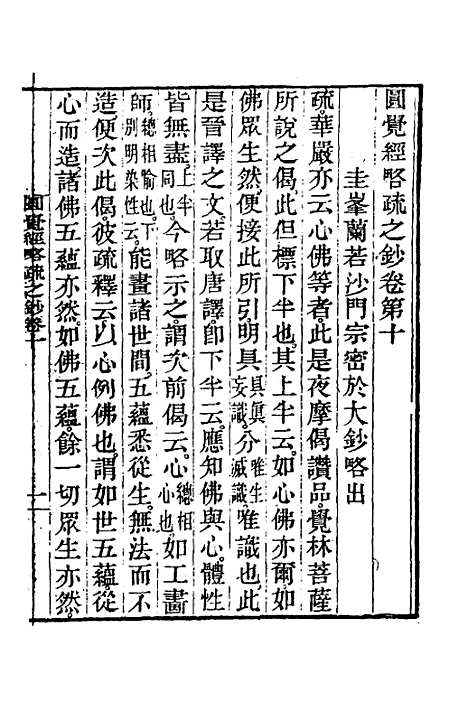 圓覺經略疏之鈔卷第十
圭峯蘭若沙門宗密於大鈔略出
疏華嚴亦云心佛等者此是夜摩偈讚品。覺林菩薩
所說之偈此但標下半也。其上半云。如心佛亦爾如
佛眾生然。便接此所引。明具具真妄識。分唯生滅識唯識也。此
是晉譯之文。若取唐譯即下半云。應知佛與心。體性
皆無盡。上半同也。今略示之。謂次前偈云。心總相心也。如工畫
師總相喻也。下別明染性云。能畫諸世間。五蘊悉從生。無法而不
造。便次此偈。彼疏釋云。以心例佛也。謂如世五蘊。從
心而造。諸佛五蘊亦然。如佛五蘊。餘一切眾生亦然。
圓覺經略疏之鈔卷十
一